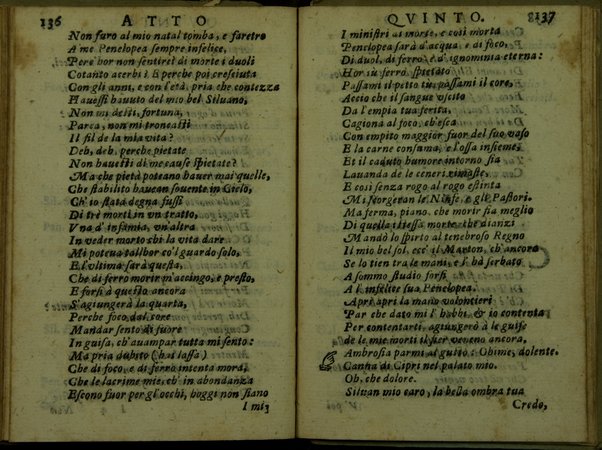 136 ATTO
Non furo al mio natal tomba, e faretro
A me Penelopea sempre infelice,
Perc' hor non sentirei di morte i duoli
Cotanto acerbi? E perche poi cresciuta
Con gli anni, e con l'età, pria che contezza
Hauessi hauuto del mio bel Siluano,
Non mi desti, fortuna,
Parca, non mi troncasti
Il fil de la mia vita?
Deh, deh, perche pietate
Non hauesti di me cause spietate?
Ma che pietà poteano hauer mai quelle,
Che stabilito hauean souente in Cielo,
Ch'io stata degna fussi
Di tre morti in vn tratto,
Vna d'infamia, vn'altra
In veder morto chi la vita dare
Mi poteua tallhor co'l guardo solo,
E l'vltima sarà questa,
Che di ferro morir m'accingo, e presto,
E forsi à questo ancora
S'agiungerà la quarta,
Perche foco dal core
Mandar sento di fuore
In guisa, ch'auampar tutta mi sento:
Ma pria dubito (hai lassa)
Che di foco, e di ferro intenta mora,
Che le lacrime mie, ch'in abondanza
Escono fuor per gl'occhi, hoggi non siano
I mi-
QVINTO. 137
I ministri al morte, e così morta
Penelopea sarà d'acqua, e di foco,
Di duol, di ferro, e d'ignominia eterna:
Hor sù ferro spietato
Passami il petto tù, passami il core,
Accio che il sangue vscito
Da l'empia tua ferita,
Cagiona al foco, ch'esca
Con empito maggior fuor del suo vaso
E la carne consume, e l'ossa insieme,
Et il caduto humore intorno sia
Lauanda de le ceneri rimaste,
E così senza rogo al rogo estinta
Mi scorgeran le Ninfe, e gli Pastori.
Ma ferma, piano, che morir sia meglio
Di quella istessa morte, che dianzi
Mandò lo spirto al tenebroso Regno
Il mio bel sol, ecc' il Marton, ch'ancora
Se lo tien tra le mani, e l'hà serbato
A sommo studio forsi
A l'infelice sua Penelopea.
Apri apri la mano volontieri
Par che dato mi l'habbi, & io contenta
Per contentarti, agiungerò à le guise
de le mie morti il fier veneno ancora.
Ambrosia parmi al gusto: Ohime, dolente.
Canna di Cipri nel palato mio.
Oh, che dolore.
Siluan mio caro, la bella ombra tua
Credo,